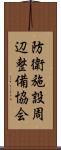 防衛施設周
辺整備協会